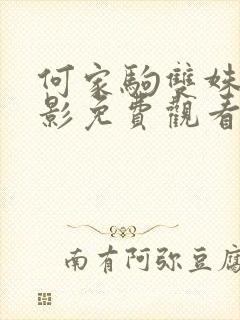 何家駒雙妹
影免費觀看
南有阿弥豆腐